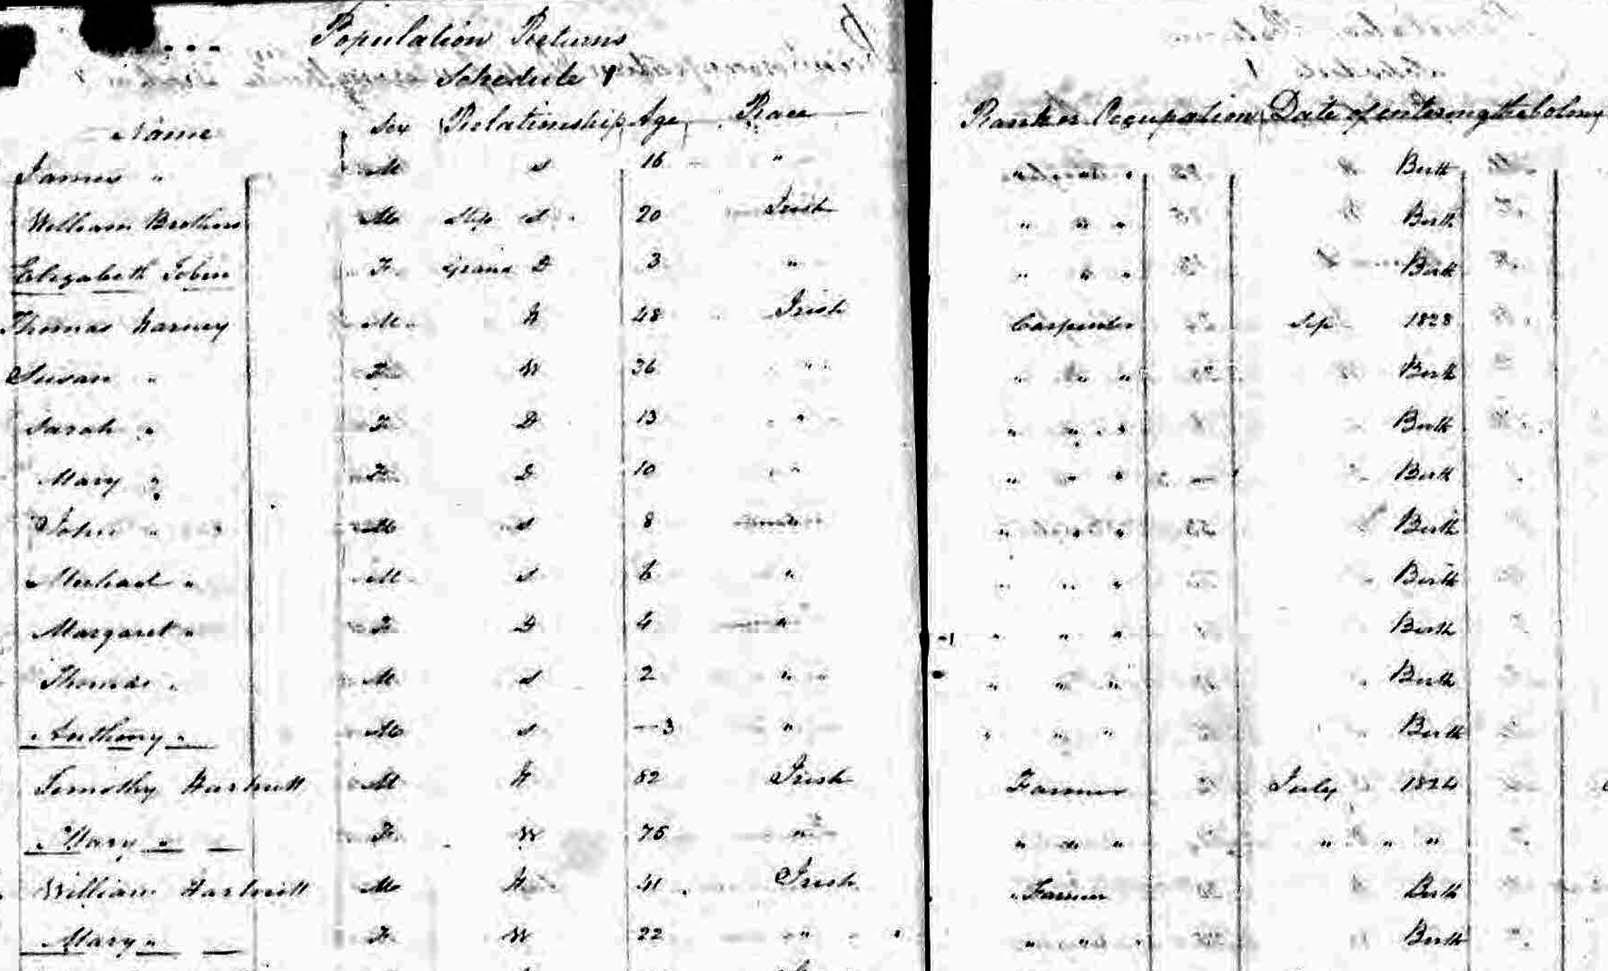 Population Returns
Schedule 1
Name Sex Relationship Age Race Rank or Occupation Date of entering the Colony
James " M S 16 " " " Birth
William Brothers M Step S 20 Irish " " " Birth
Elizabeth Tobin F Grand D 3 " " " " Birth
Thomas Karney M H 48 Irish Carpenter Sep 1828
Susan " F W 36 " " " " " Birth
Sarah " F D 13 " " " " Birth
Mary " F D 10 " " " " " Birth
John " M S 8 " " " Birth
Micheal " M S 6 " " " " Birth
Margaret " F D 4 " " " " Birth
Thomas " M S 2 " " " " Birth
Anthony " M S —3 " " " " Birth
Timothy Hartnett M H 82 Irish Farmer July 1824
Mary " F W 75 " " " " " " "
William Hartnett M H 41 Irish Farmer Birth
Mary " F W 22 " " " " Birth